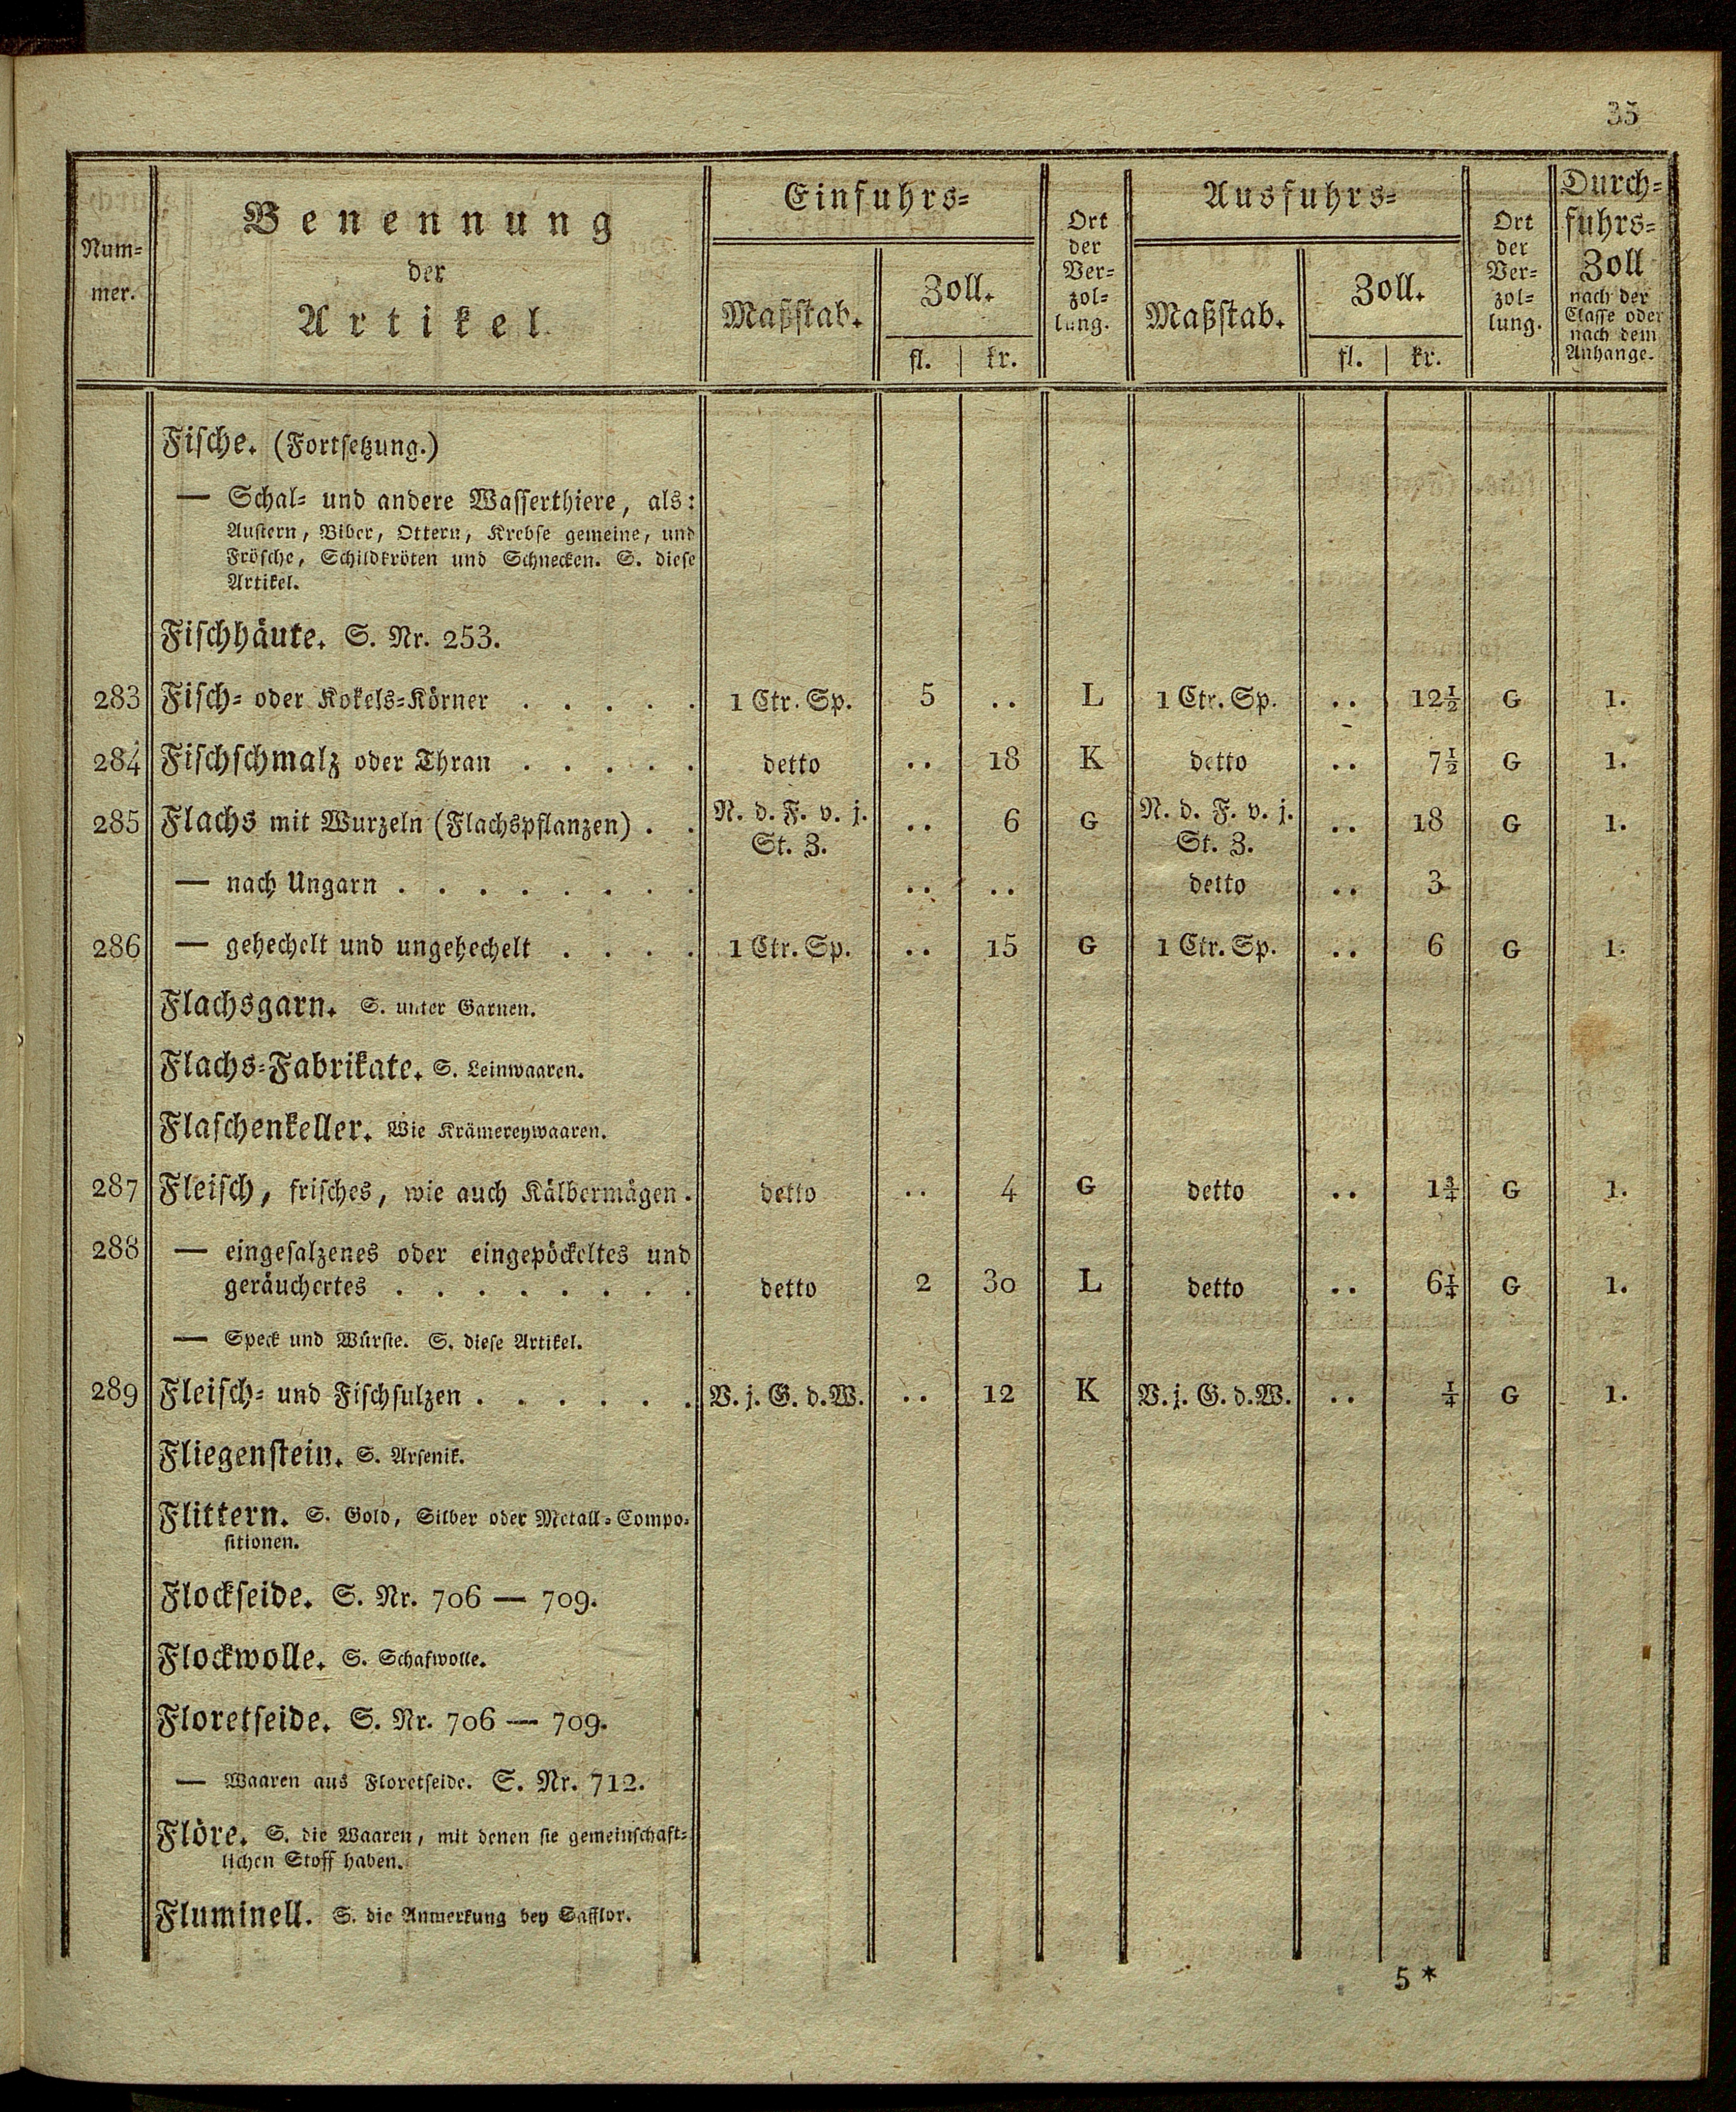 35
Num-
mer.
Benennung
der
Artikel
Einfuhrs-
Maßstab.
Zoll.
fl. kr.
Ort
der
Ver-
zol-
lung.
Ausfuhrs-
Maßstab.
Zoll.
fl. kr.
Ort
der
Ver-
zol-
lung.
Durch-
fuhrs-
Zoll
nach der
Classe oder
nach dem
Anhange.
Fische. (Fortsetzung.)
— Schal- und andere Wasserthiere, als:
Austern, Biber, Ottern, Krebse gemeine, und
Frösche, Schildkröten und Schnecken. S. diese
Artikel.
Fischhäute. S. Nr. 253.
283 Fisch- oder Kokels-Körner . . . . . 1 Ctr. Sp. 5 .. L 1 Ctr. Sp. .. 12½ G 1.
284 Fischschmalz oder Thran . . . . . detto .. 18 K detto .. 7½ G 1.
285 Flachs mit Wurzeln (Flachspflanzen) . . N. d. F. v. j. St. Z. .. 6 G N. d. F. v. j. St. Z. .. 18 G 1.
— nach Ungarn . . . . . . . . .. .. detto .. 3
286 — gehechelt und ungehechelt . . . . 1 Ctr. Sp. .. 15 G 1 Ctr. Sp. .. 6 G 1.
Flachsgarn. S. unter Garnen.
Flachs-Fabrikate. S. Leinwaaren.
Flaschenkeller. Wie Krämereywaaren.
287 Fleisch, frisches, wie auch Kälbermägen . detto .. 4 G detto .. 1¾ G 1.
288 — eingesalzenes oder eingepöckeltes und
geräuchertes . . . . . . . . detto 2 30 L detto .. 6¼ G 1.
— Speck und Würste. S. diese Artikel.
289 Fleisch- und Fischsulzen . . . . . . V. j. G. d. W. .. 12 K V. j. G. d. W. .. ¼ G 1.
Fliegenstein. S. Arsenik.
Flittern. S. Gold, Silber oder Metall-Compo-
sitionen.
Flockseide. S. Nr. 706 — 709.
Flockwolle. S. Schafwolle.
Floretseide. S. Nr. 706 — 709.
— Waaren aus Floretseide. S. Nr. 712.
Flöre. S. die Waaren, mit denen sie gemeinschaft-
lichen Stoff haben.
Fluminell. S. die Anmerkung bey Safflor.
5 *